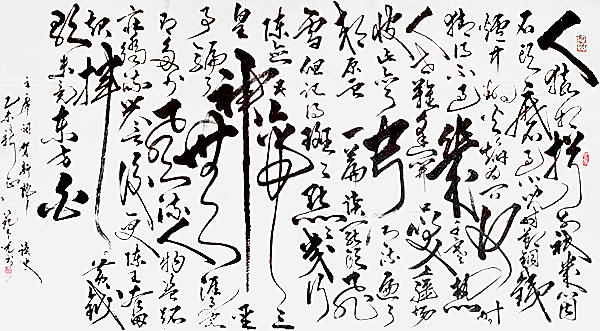 人猿相揖别只几个
石头磨过小儿时节铜铁
炉中翻火焰为问何时
猜得不过几千寒热
人世难逢开口笑上疆场
彼此弯弓月流遍了
郊原血一篇读罢头飞
雪但记得斑斑点点几行
陈迹五帝三
皇神圣
事骗了无涯过客
有多少风流人物盗跖
庄蹻流誉后更陈王奋
起挥黄钺
歌未竟东方白
主席词贺新郎读史
乙未